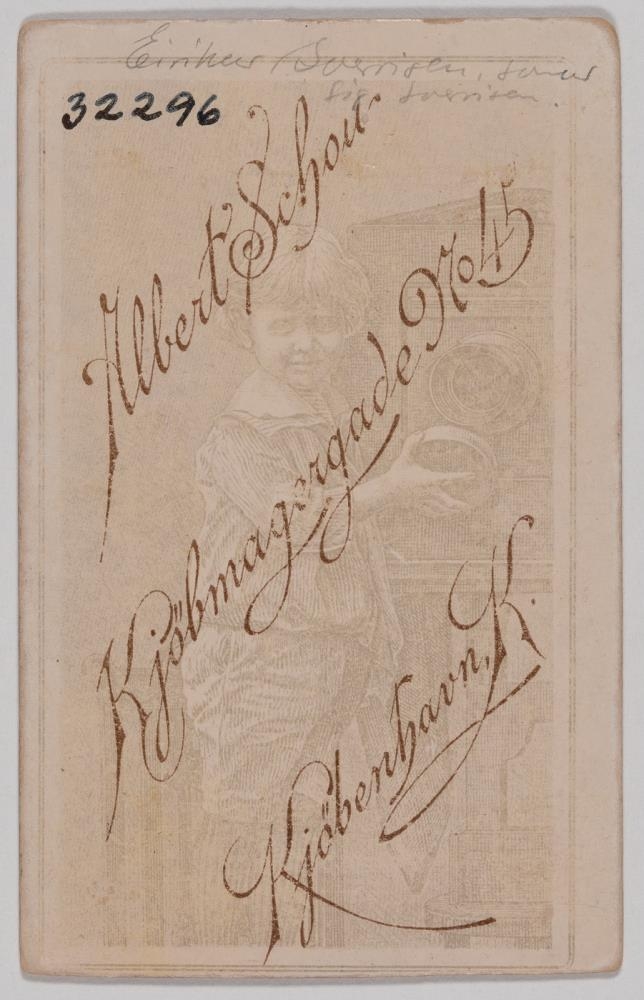 Eiríkur Sverrisen, sonur
Sig. Sverrisen.
32296
Albert Schou
Kjöbmagergade No 45
Kjöbenhavn, K.